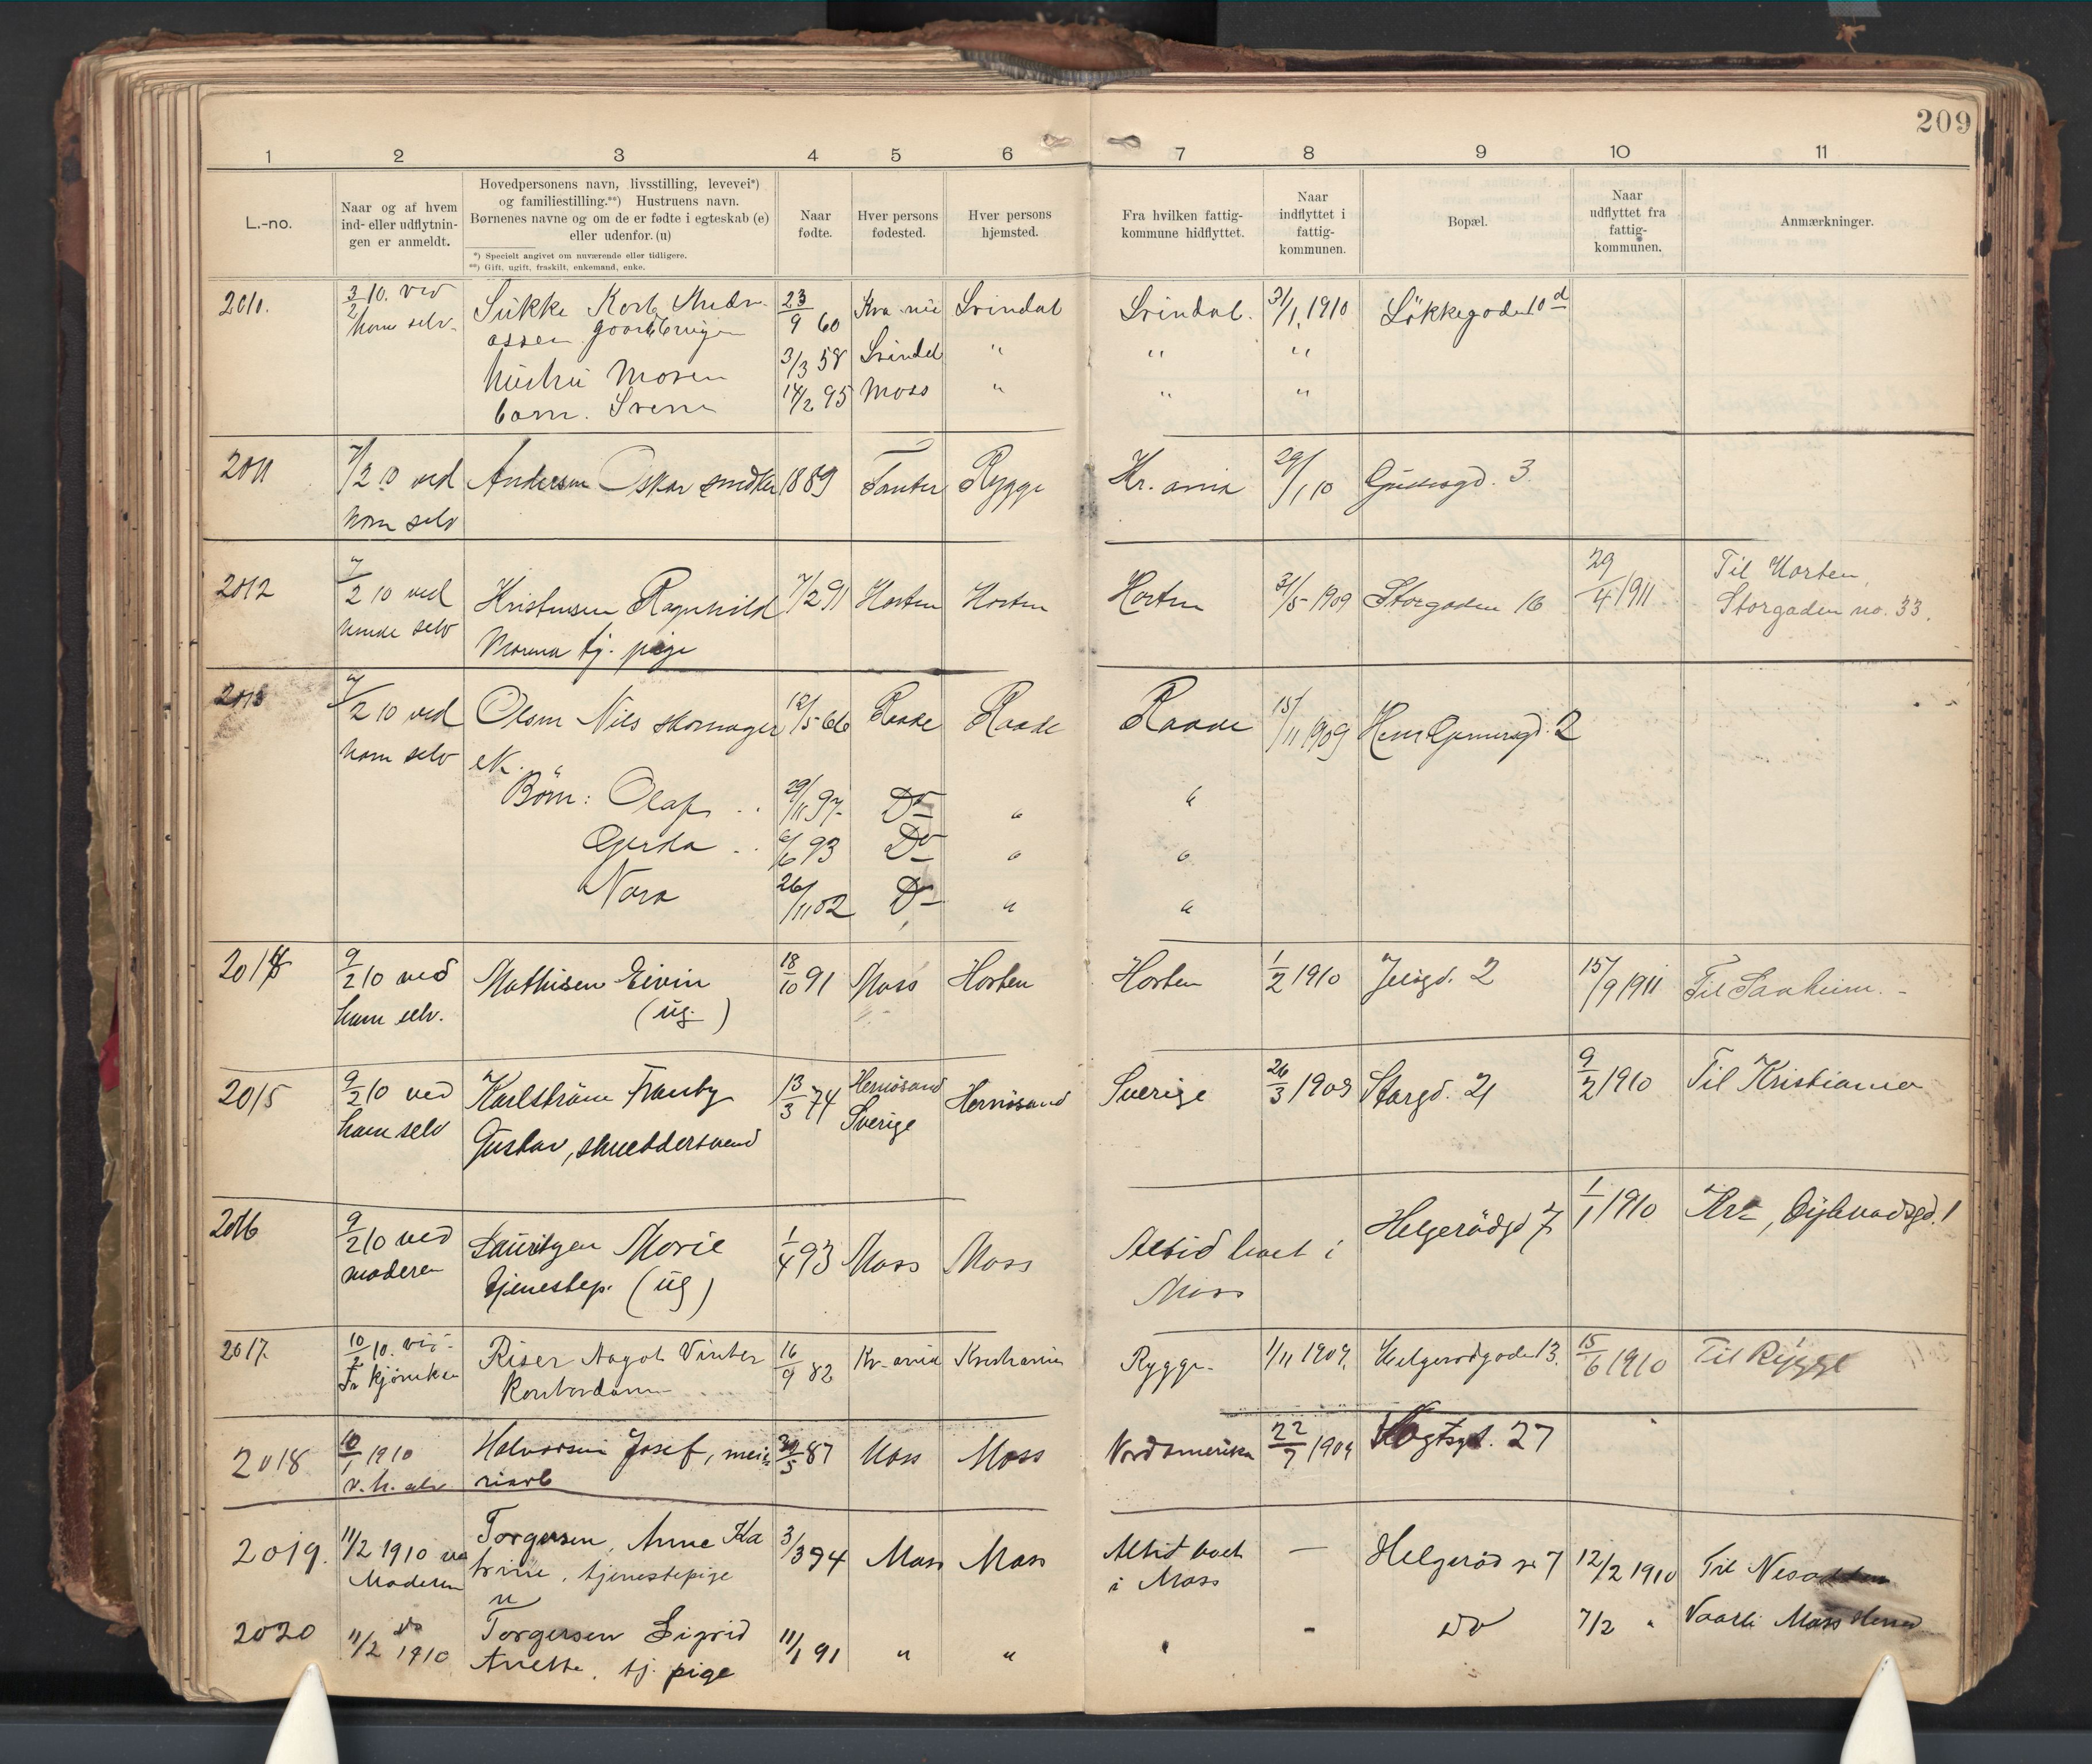 209
1 2 3 4 5 6 7 8 9 10 11
L.-no.
Naar og af hvem
ind- eller udflytnin-
gen er anmeldt.
Hovedpersonens navn, livsstilling, levevei*)
og familiestilling.**) Hustruens navn.
Børnenes navne og om de er fødte i egteskab (e)
eller udenfor. (u)
*) Specielt angivet om nuværende eller tidligere.
**) Gift, ugift, fraskilt, enkemand, enke.
Naar
fødte.
Hver persons
fødested.
Hver persons
hjemsted.
Fra hvilken fattig-
kommune hidflyttet.
Naar
indflyttet i
fattig-
kommunen.
Bopæl.
Naar
udflyttet fra
fattig-
kommunen.
Anmærkninger.
2010. 3/2 10. ved 23/9 60 Svindal Svindal. 31/1 1910 10 d
ham selv.
hustru 3/3 58 " " "
barn. 14/2 95 Moss " " "
2011 7/2 10 ved Andersen Oskar 1889 Rygge Kr.ania 29/1 10 3.
ham selv
2012 7/2 10 ved Kristensen Ragnhild 7/2 91 Horten Horten Horten 31/5 1909 Storgaden 16 29/4 1911 Til Horten,
hende selv tj. pige Storgaden no. 33.
2013 7/2 10 ved Olsen Nils skomager 12/5 66 Raade Raade Raade 15/11 1909 2
ham selv ek. "
Børn: Olaf .. 29/11 97 Do " "
Gerda .. 6/6 93 Do " "
Nora 26/11 02 Do " "
2014 9/2 10 ved Mathisen Eivin 18/10 91 Moss Horten Horten 1/2 1910 Jeløgd. 2 15/9 1911 Til Saaheim. -
ham selv. (ug.)
2015 9/2 10 ved Karlstrøm 13/3 74 Hernøsand Hernøsand Sverige 26/3 1909 Storgd. 21 9/2 1910 Til Kristiania
ham selv Gustav, skræddersvend Sverige
2016 9/2 10 ved Lauritzen Marie 1/4 93 Moss Moss Altid boet i Helgerödgd 7 1/1 1910
moderen tjenestep. (ug) Moss
2017. 10/2 10. Riser Aagot Vinter 16/9 82 Kr-ania Kristiania Rygge 1/11 1909. 13. 15/6 1910 Til Rygge
Kontordame
2018 10/1 1910 Halvorsen Josef, mei- 87 Moss Moss Nordamerika 22/7 1909 Vogtsgt. 27
v. h. selv riarb
2019. 11/2 1910 Torgersen, Anne Ka 3/3 94 Moss Moss Altid boet — Helgerød gt 7 12/2 1910 Til Nesodden
Moderen trine, tjenestepige i Moss
u
2020 11/2 do 1910 Torgersen Sigrid 11/1 91 " " " - do 7/2 " Vaarli Moss Herred
Anette, tj. pige